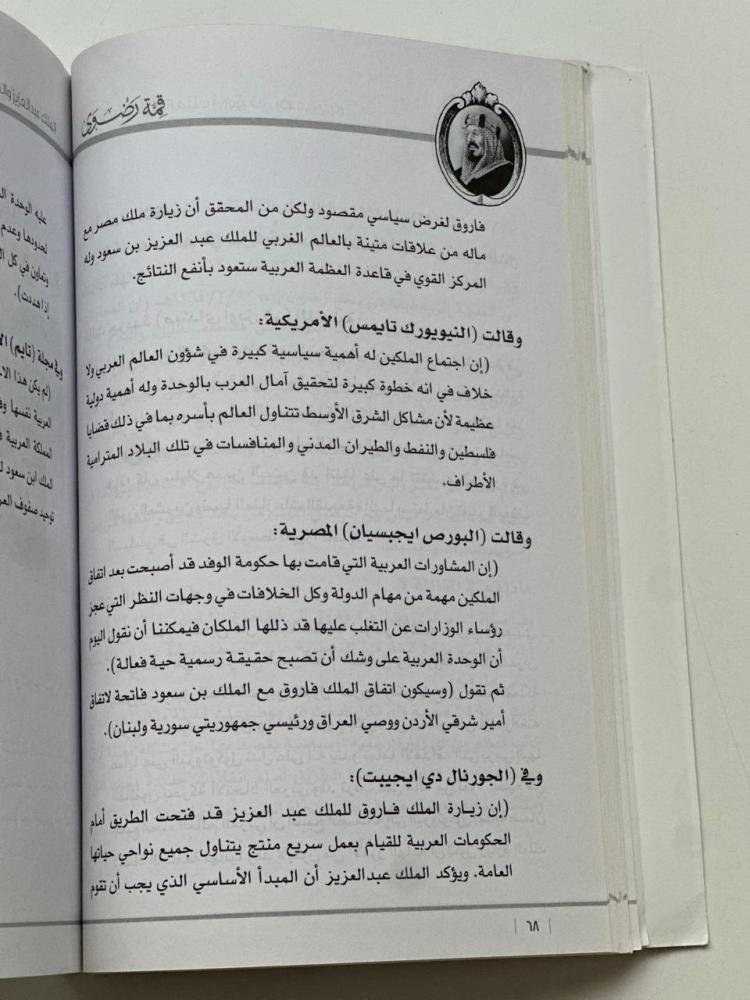 قمة رضوى
فاروق لغرض سياسي مقصود ولكن من المحقق أن زيارة ملك مصر مع
ماله من علاقات متينة بالعالم الغربي للملك عبد العزيز بن سعود وله
المركز القوي في قاعدة العظمة العربية ستعود بأنفع النتائج.
وقالت (النيويورك تايمس) الأمريكية:
(إن اجتماع الملكين له أهمية سياسية كبيرة في شؤون العالم العربي ولا
خلاف في انه خطوة كبيرة لتحقيق آمال العرب بالوحدة وله أهمية دولية
عظيمة لأن مشاكل الشرق الأوسط تتناول العالم بأسره بما في ذلك قضايا
فلسطين والنفط والطيران المدني والمنافسات في تلك البلاد المترامية
الأطراف.
وقالت (البورص ايجبسيان) المصرية:
(إن المشاورات العربية التي قامت بها حكومة الوفد قد أصبحت بعد اتفاق
الملكين مهمة من مهام الدولة وكل الخلافات في وجهات النظر التي عجز
رؤساء الوزارات عن التغلب عليها قد ذللها الملكان فيمكننا أن نقول اليوم
أن الوحدة العربية على وشك أن تصبح حقيقة رسمية حية فعالة).
ثم تقول (وسيكون اتفاق الملك فاروق مع الملك بن سعود فاتحة لاتفاق
أمير شرقي الأردن ووصي العراق ورئيسي جمهوريتي سورية ولبنان).
وفي (الجورنال دي ايجيبت):
(إن زيارة الملك فاروق للملك عبد العزيز قد فتحت الطريق أمام
الحكومات العربية للقيام بعمل سريع منتج يتناول جميع نواحي حياتها
العامة. ويؤكد الملك عبدالعزيز أن المبدأ الأساسي الذي يجب أن تقوم
٦٨
الملك عبدالعزيز
عليه الوحدة
لحدودها وعدم
وتعاون في كل
إذا هددت).
وفي مجلة (تايم)
(لم يكن هذا
العربية نفسها
المملكة العربية
الملك ابن سعود
توحيد صفوف